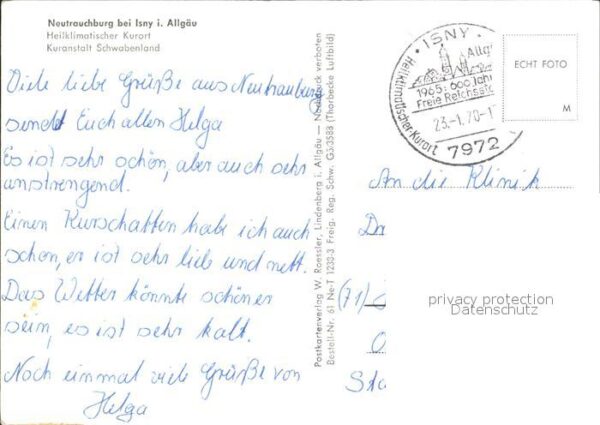 Neutrauchburg bei Isny i. Allgäu
Heilklimatischer Kurort
Kuranstalt Schwabenland
Viele liebe Grüße aus Neutrauburg
sendet Euch allen Helga
Es ist sehr schön, aber auch sehr
anstrengend.
Einen Kurschatten habe ich auch
schon, er ist sehr lieb und nett.
Das Wetter könnte schöner
sein, es ist sehr kalt.
Noch einmal viele Grüße von
Helga
Postkartenverlag W. Roessler, Lindenberg i. Allgäu — Nachdruck verboten
Bestell-Nr. 61 Ne-T 1233-3 Freig. Reg. Schw. G3/3588 (Thorbecke Luftbild)
ISNY
Allgäu
Heilklimatischer-Kurort
1965: 600 Jahre
Freie Reichsstadt
23.-1.70-1
7972
ECHT FOTO
M
An die Klinik
Dr
(71)
privacy protection
Datenschutz
O
Sta